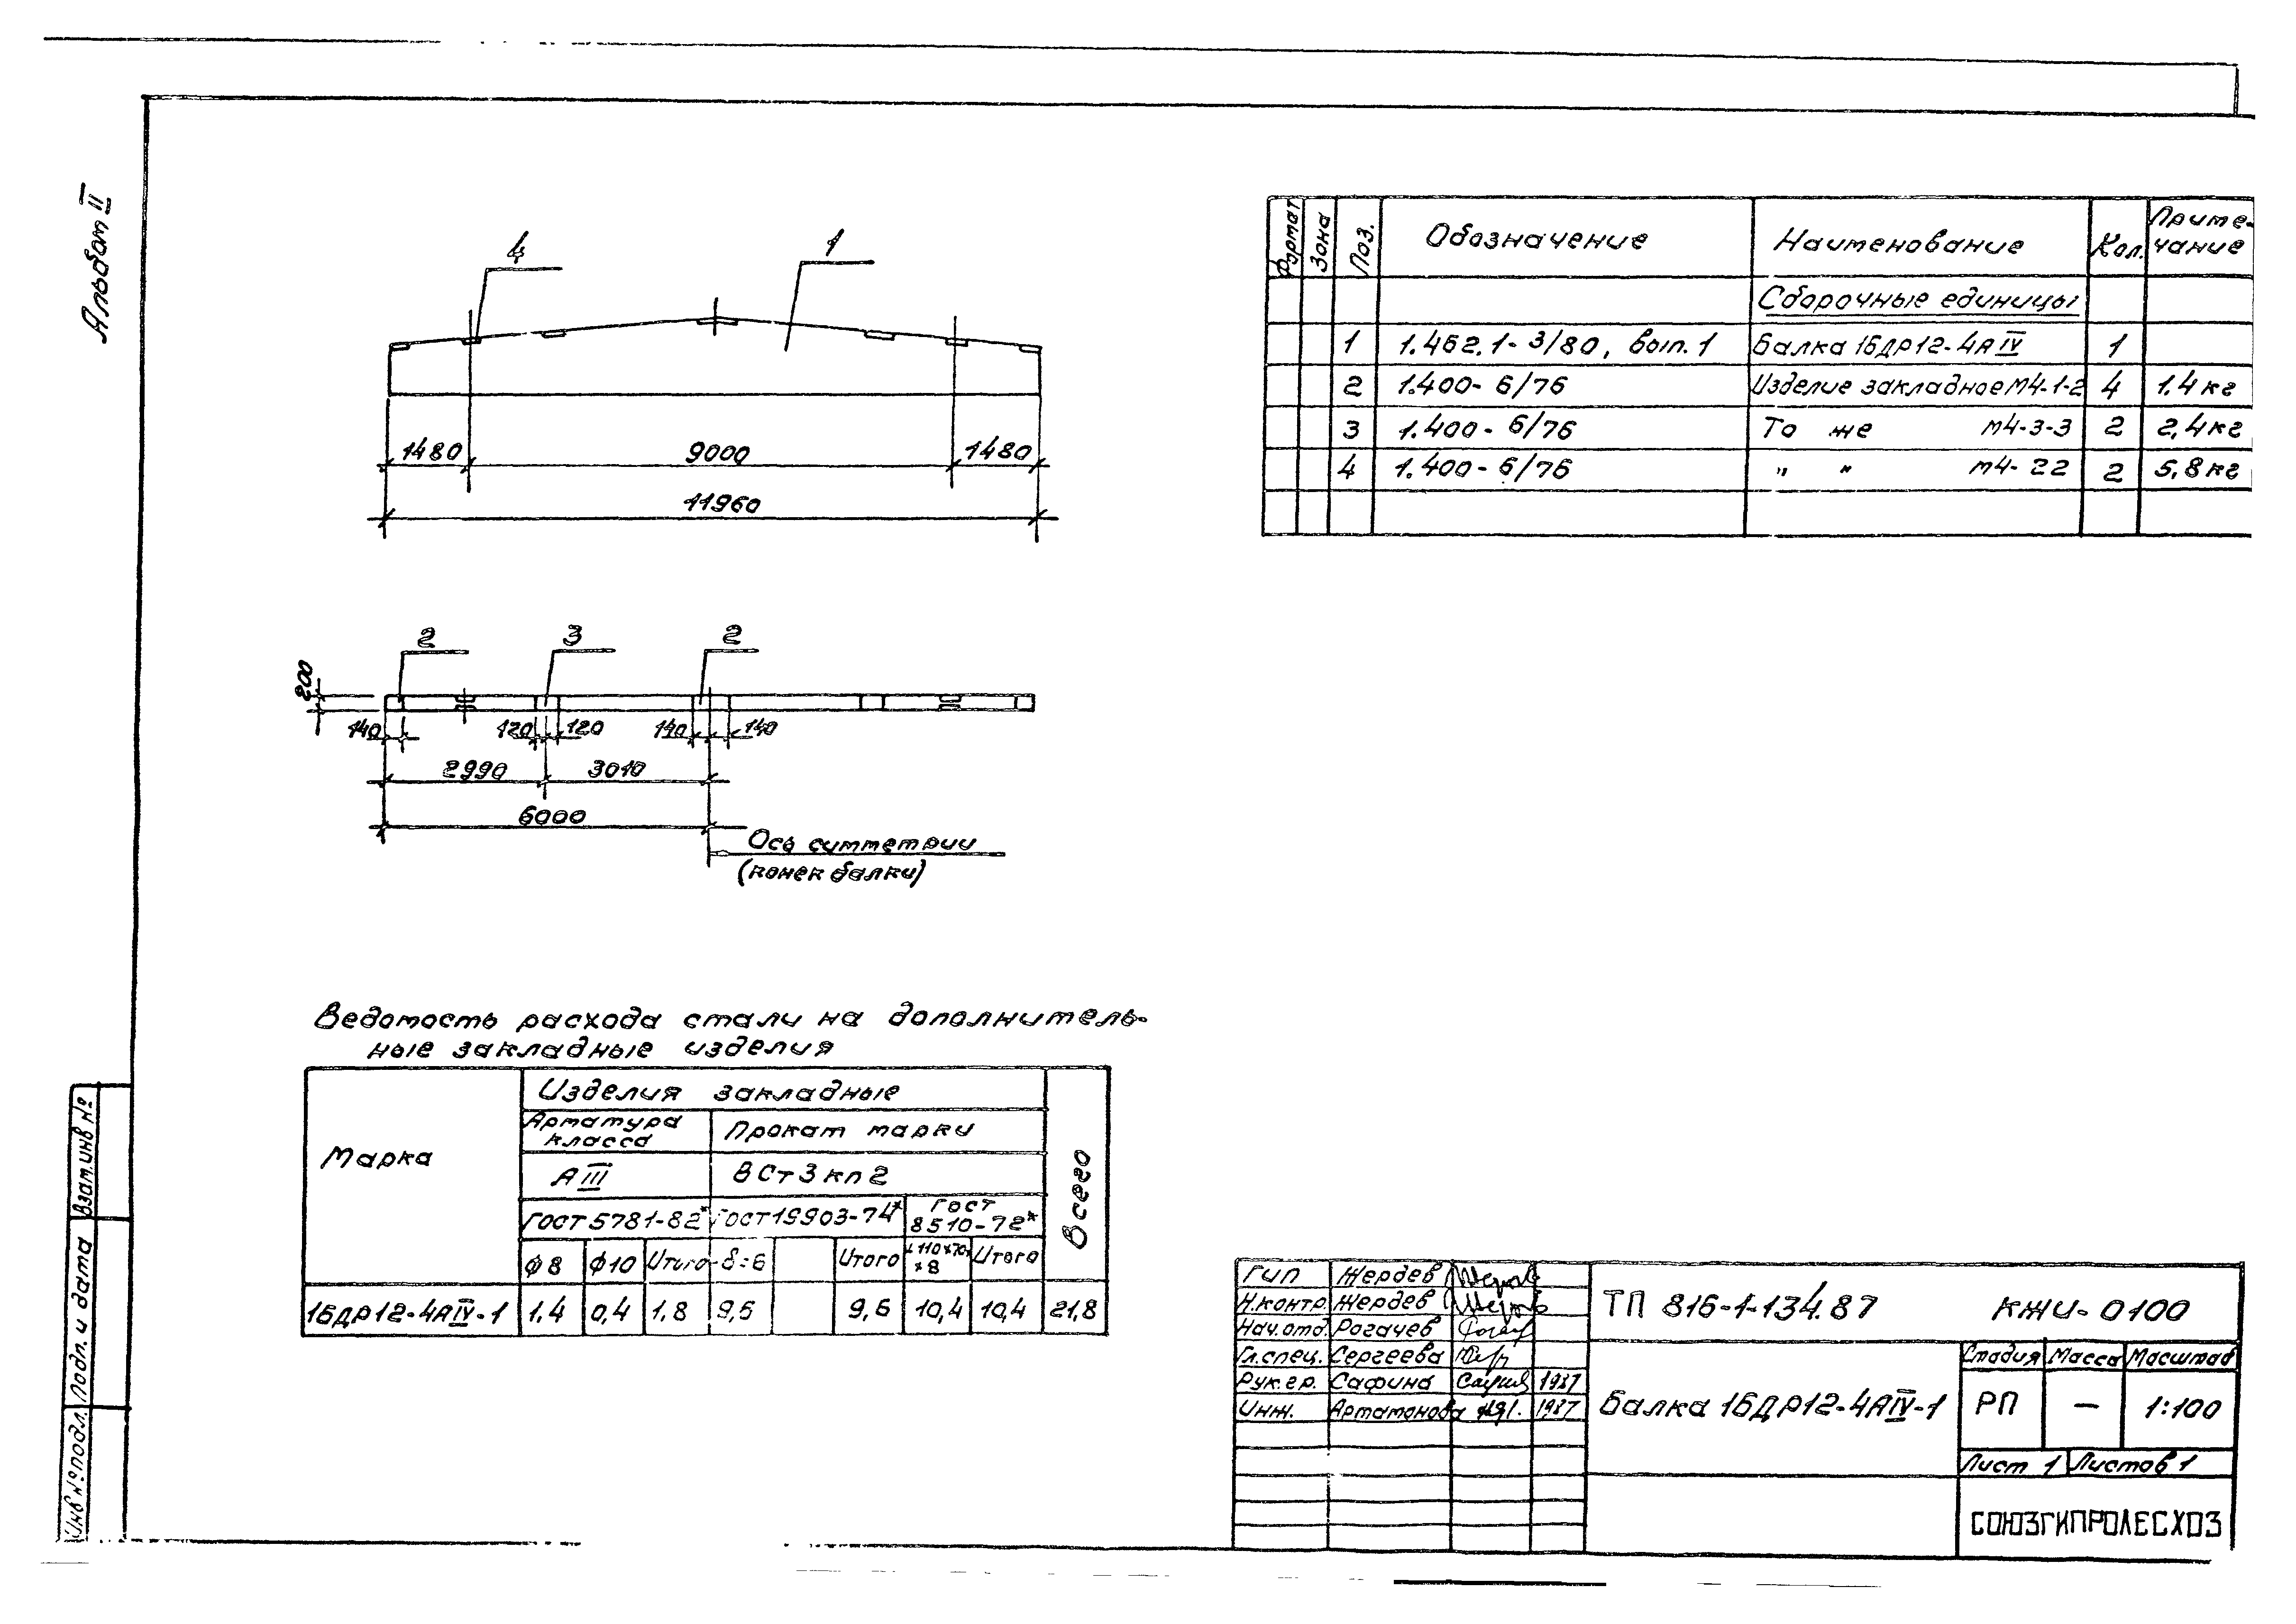 Альбом II
4
1
1480 9000 1480
11960
2 3 2
200
140 120 120 140 140
2990 3010
6000
Ось симметрии
(конек балки)
Формат Зона Поз. Обозначение Наименование Кол. Приме-
чание
Сборочные единицы
1 1.462.1-3/80, вып. 1 Балка 1БДР12-4АIV 1
2 1.400-6/76 Изделие закладное М4-1-2 4 1.4 кг
3 1.400-6/76 То же М4-3-3 2 2,4 кг
4 1.400-6/76 " " М4-22 2 5,8 кг
Ведомость расхода стали на дополнитель-
ные закладные изделия
Марка
Изделия закладные
Всего
Арматура
класса
Прокат марки
АIII
ВСт3кп2
ГОСТ 5781-82* ГОСТ 19903-74* ГОСТ
8510-72*
ф8 ф10 Итого δ=6 Итого L110х70х
х8 Итого
1БДР12-4АIV-1 1,4 0,4 1,8 9,6 9,6 10,4 10,4 21,8
Взам.инв №
Подп. и дата
Инв № подл.
Гип Жердев
Н.контр. Жердев
Нач.отд. Рогачев
Гл.спец. Сергеева
Рук.гр. Сафина 1987
Инж. Артамонова 1987
ТП 816-1-134.87 КЖИ-0100
Балка 1БДР12-4АIV-1
Стадия Масса Масштаб
РП — 1:100
Лист 1 Листов 1
СОЮЗГИПРОЛЕСХОЗ